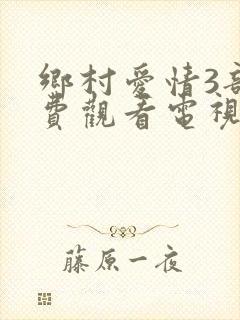 鄉村愛情3部
費觀看電視
藤原一夜